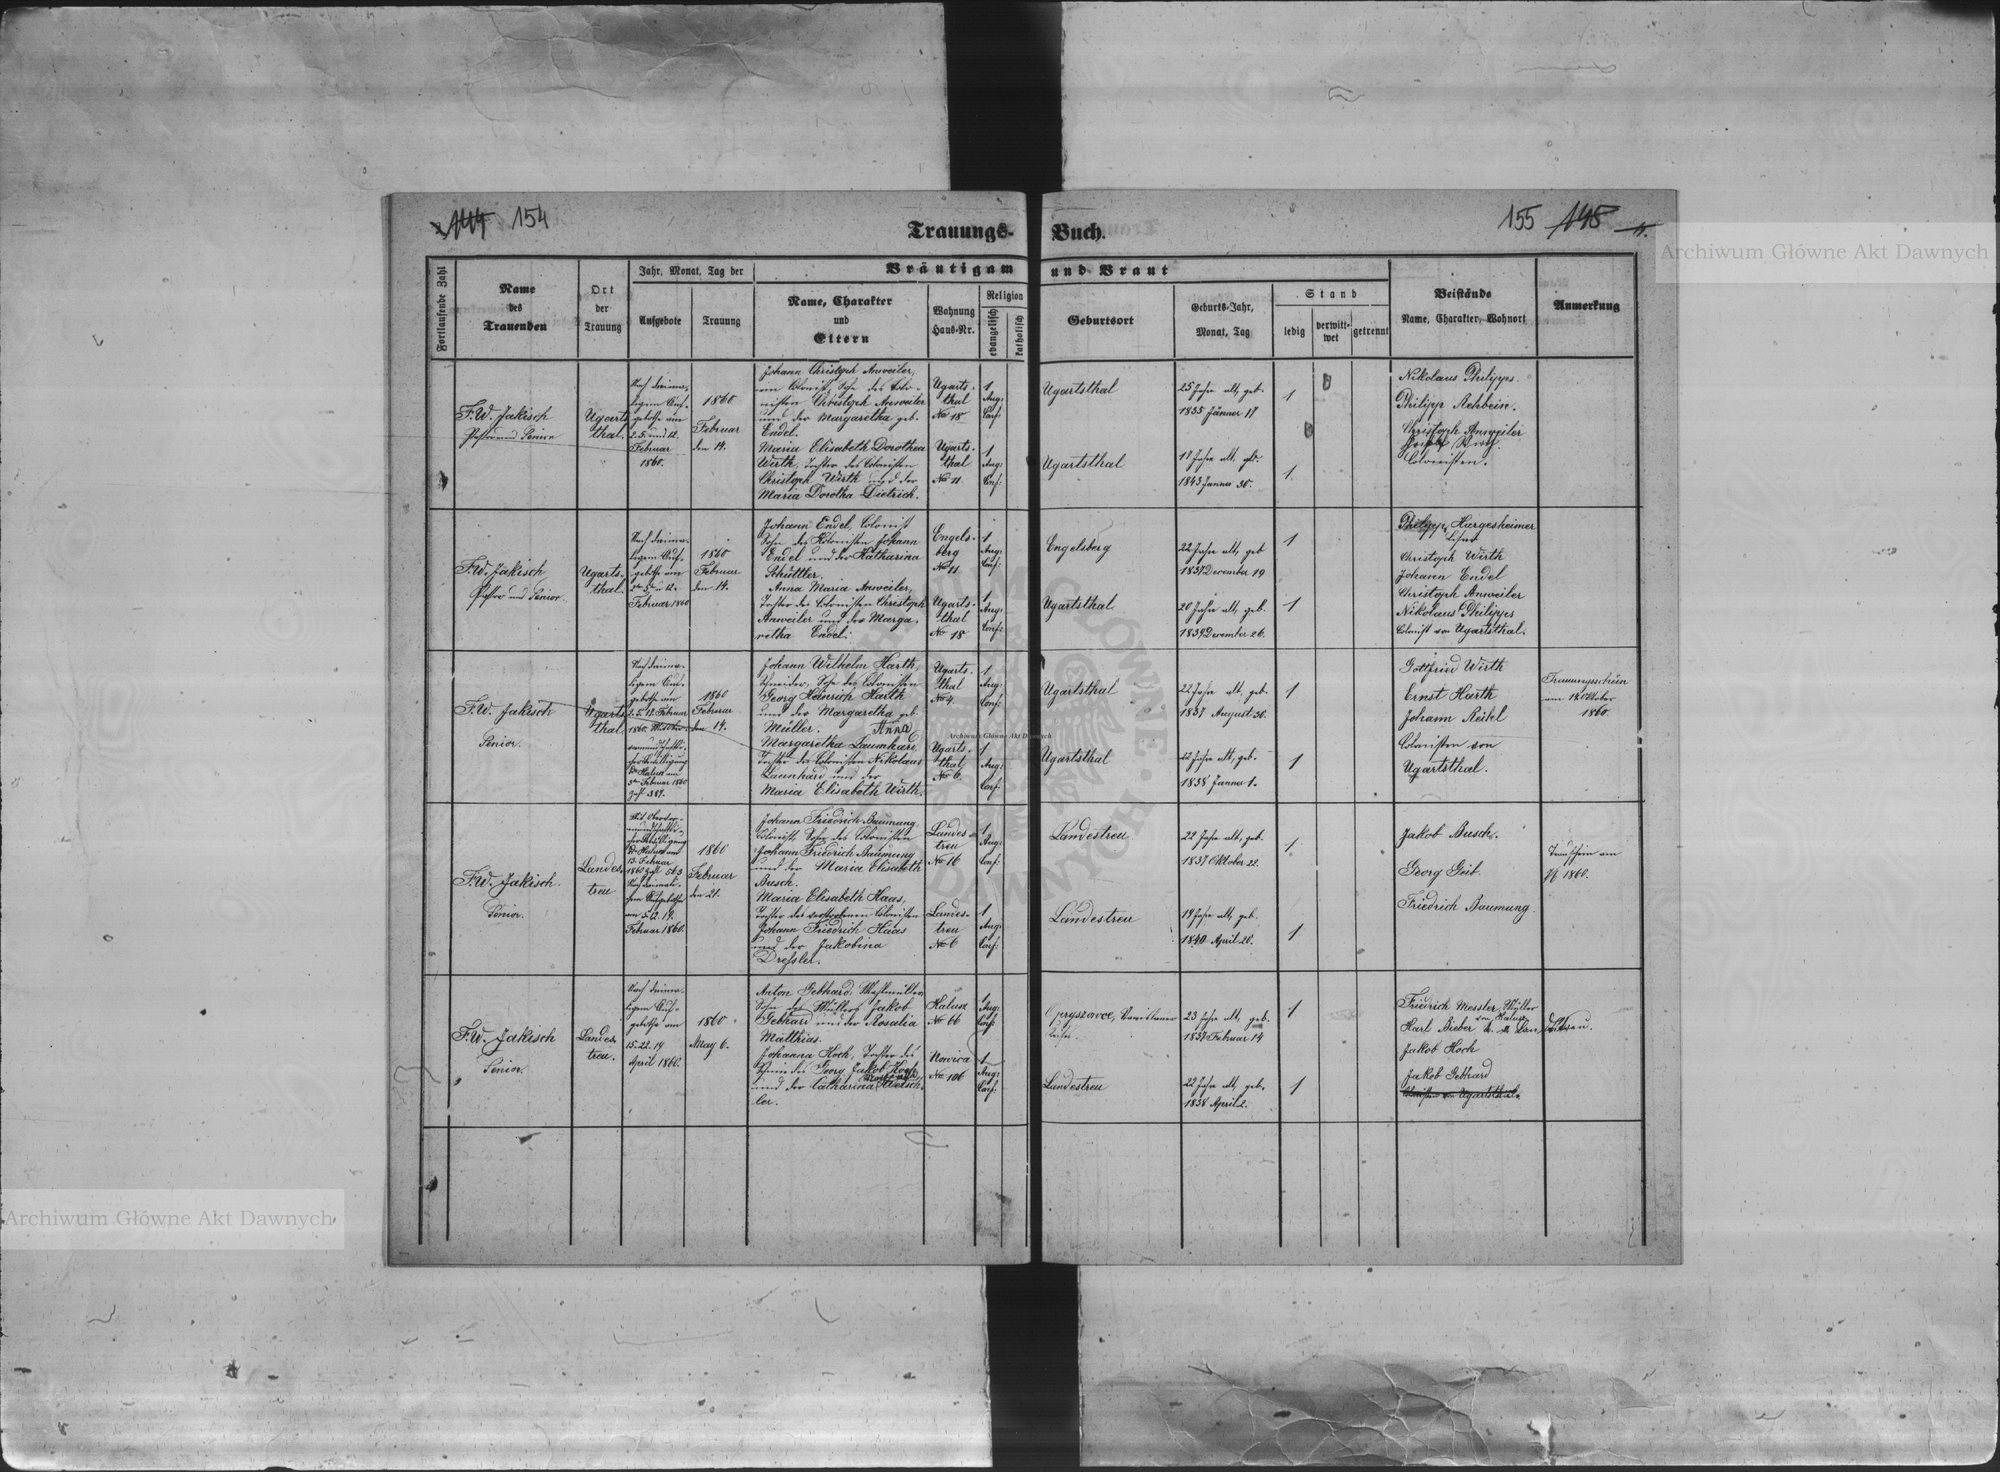 144 154
Trauungs-
Buch.
155 145
Archiwum Główne Akt Dawnych
Fortlaufende Zahl
Name
des
Trauenden
Ort
der
Trauung
Jahr, Monat, Tag der
Aufgebote
Trauung
Bräutigam
und Braut
Name, Charakter
und
Eltern
Wohnung
Haus-Nr.
Religion
evangelisch
katholisch
Geburtsort
Geburts-Jahr,
Monat, Tag
Stand
ledig
verwitt-
wet
getrennt
Beistände
Name, Charakter, Wohnort
Anmerkung
F. W. Jakisch
Pastor und Senior
Ugarts
thal.
Nach dreima-
ligem Auf-
gebothe am
2. 5. und 12.
Februar
1860.
1860
Februar
den 14.
Johann Christoph Anweiler,
ein Colonist, Sohn des Colo-
nisten Christoph Anweiler
und der Margaretha geb.
Endel.
Maria Elisabeth Dorothea
Wirth, Tochter des Colonisten
Christoph Wirth und der
Maria Dorotha Dietrich.
Ugarts-
thal
No 18
Ugarts-
thal
No 11.
1
Aug:
Conf:
1
Aug:
Conf:
Ugartsthal
Ugartsthal
25 Jahre alt, geb.
1835 Jänner 17
17 Jahre alt, geb.
1843 Janner 30.
1
1.
Nikolaus Philipps.
Philipp Rehbein.
Christoph Anweiler
Colonisten.
F. W. Jakisch
Pastor und Senior.
Ugarts-
thal.
Nach dreima-
ligem Auf-
gebothe am
2. 5. u 12.
Februar 1860
1860
Februar
den 14.
Johann Endel, Colonist
Sohn des Kolonisten Johann
Endel und der Katharina
Schüttler.
Anna Maria Anweiler,
Tochter des Colonisten Christoph
Anweiler und der Marga-
retha Endel.
Engels-
berg
No 11
Ugarts-
thal
No 18
1
Aug:
Conf:
1
Aug:
Conf:
Engelsberg
Ugartsthal
22 Jahre alt, geb
1837 December 19
20 Jahre alt, geb.
1839 December 26.
1
1
Philipp Hargesheimer
Christoph Wirth
Johann Endel
Christoph Anweiler
Nikolaus Philipps
Colonist von Ugartsthal.
F. W. Jakisch
Senior.
Ugarts
thal
Nach dreima-
ligem Auf-
gebothe am
2. 5. 12. Februar
1860
3ten Februar 1860
Zahl 389.
1860
Februar
den 14.
Johann Wilhelm Harth,
Schneider, Sohn des Colonisten
Georg Heinrich Harth
und der Margaretha geb.
Müller. Anna
Margaretha Launhard,
Tochter des Colonisten Nikolaus
Launhard und der
Maria Elisabeth Wirth.
Ugarts.
thal
No 4.
Ugarts-
thal
No 6.
1
Aug:
Conf:
1
Aug:
Conf:
Ugartsthal
Ugartsthal
22 Jahre alt, geb.
1837 August 30.
22 Jahre alt, geb.
1838 Janner 1.
1
1
Gottfried Wirth
Ernst Harth
Johann Reitel
Colonisten von
Ugartsthal.
Trauungsschein
1860.
Archiwum Główne Akt Dawnych
F. W. Jakisch.
Senior.
Landes,
treu
13. Februar
1860 Zahl 563
am 5. 12. 19.
Februar 1860.
1860
Februar
den 21.
Johann Friedrich Baumung,
Colonist, Sohn des Colonisten
Johann Friedrich Baumung
und der Maria Elisabeth
Busch.
Maria Elisabeth Haas,
Tochter des verstorbenen Colonisten
Johann Friedrich Haas
und der Jakobina
Dreßler.
Landes-
treu
No 16
Landes-
treu
No 6
1
Aug:
Conf:
1
Aug:
Conf:
Landestreu
Landestreu
22 Jahre alt, geb.
1837 Oktober 22.
19 Jahre alt, geb.
1840 April 20.
1
1
Jakob Busch.
Georg Geib.
Friedrich Baumung.
1860.
F. W. Jakisch
Senior.
Landes
treu.
Nach dreima-
ligem Auf-
gebothe am
15. 22. 19
April 1860.
1860
May 6.
Anton Gebhard, Mahlmüller,
Sohn des Müllers Jakob
Gebhard und der Rosalia
Matthias.
Johanna Koch, Tochter des
Schneiders Georg Jakob Koch
und der Catharina Wetsch-
ler.
Kalusz
No 66
Nowica
No 106
1
Aug:
Conf:
1
Aug:
Conf:
Landestreu
23 Jahre alt, geb.
1837 Februar 14
22 Jahre alt, geb.
1838 April 2.
1
1
Friedrich Messler, Müller
von Kalusz
Karl Bieber
Jakob Koch
Jakob Gebhard
Colonisten von Ugartsthal.
Archiwum Główne Akt Dawnych